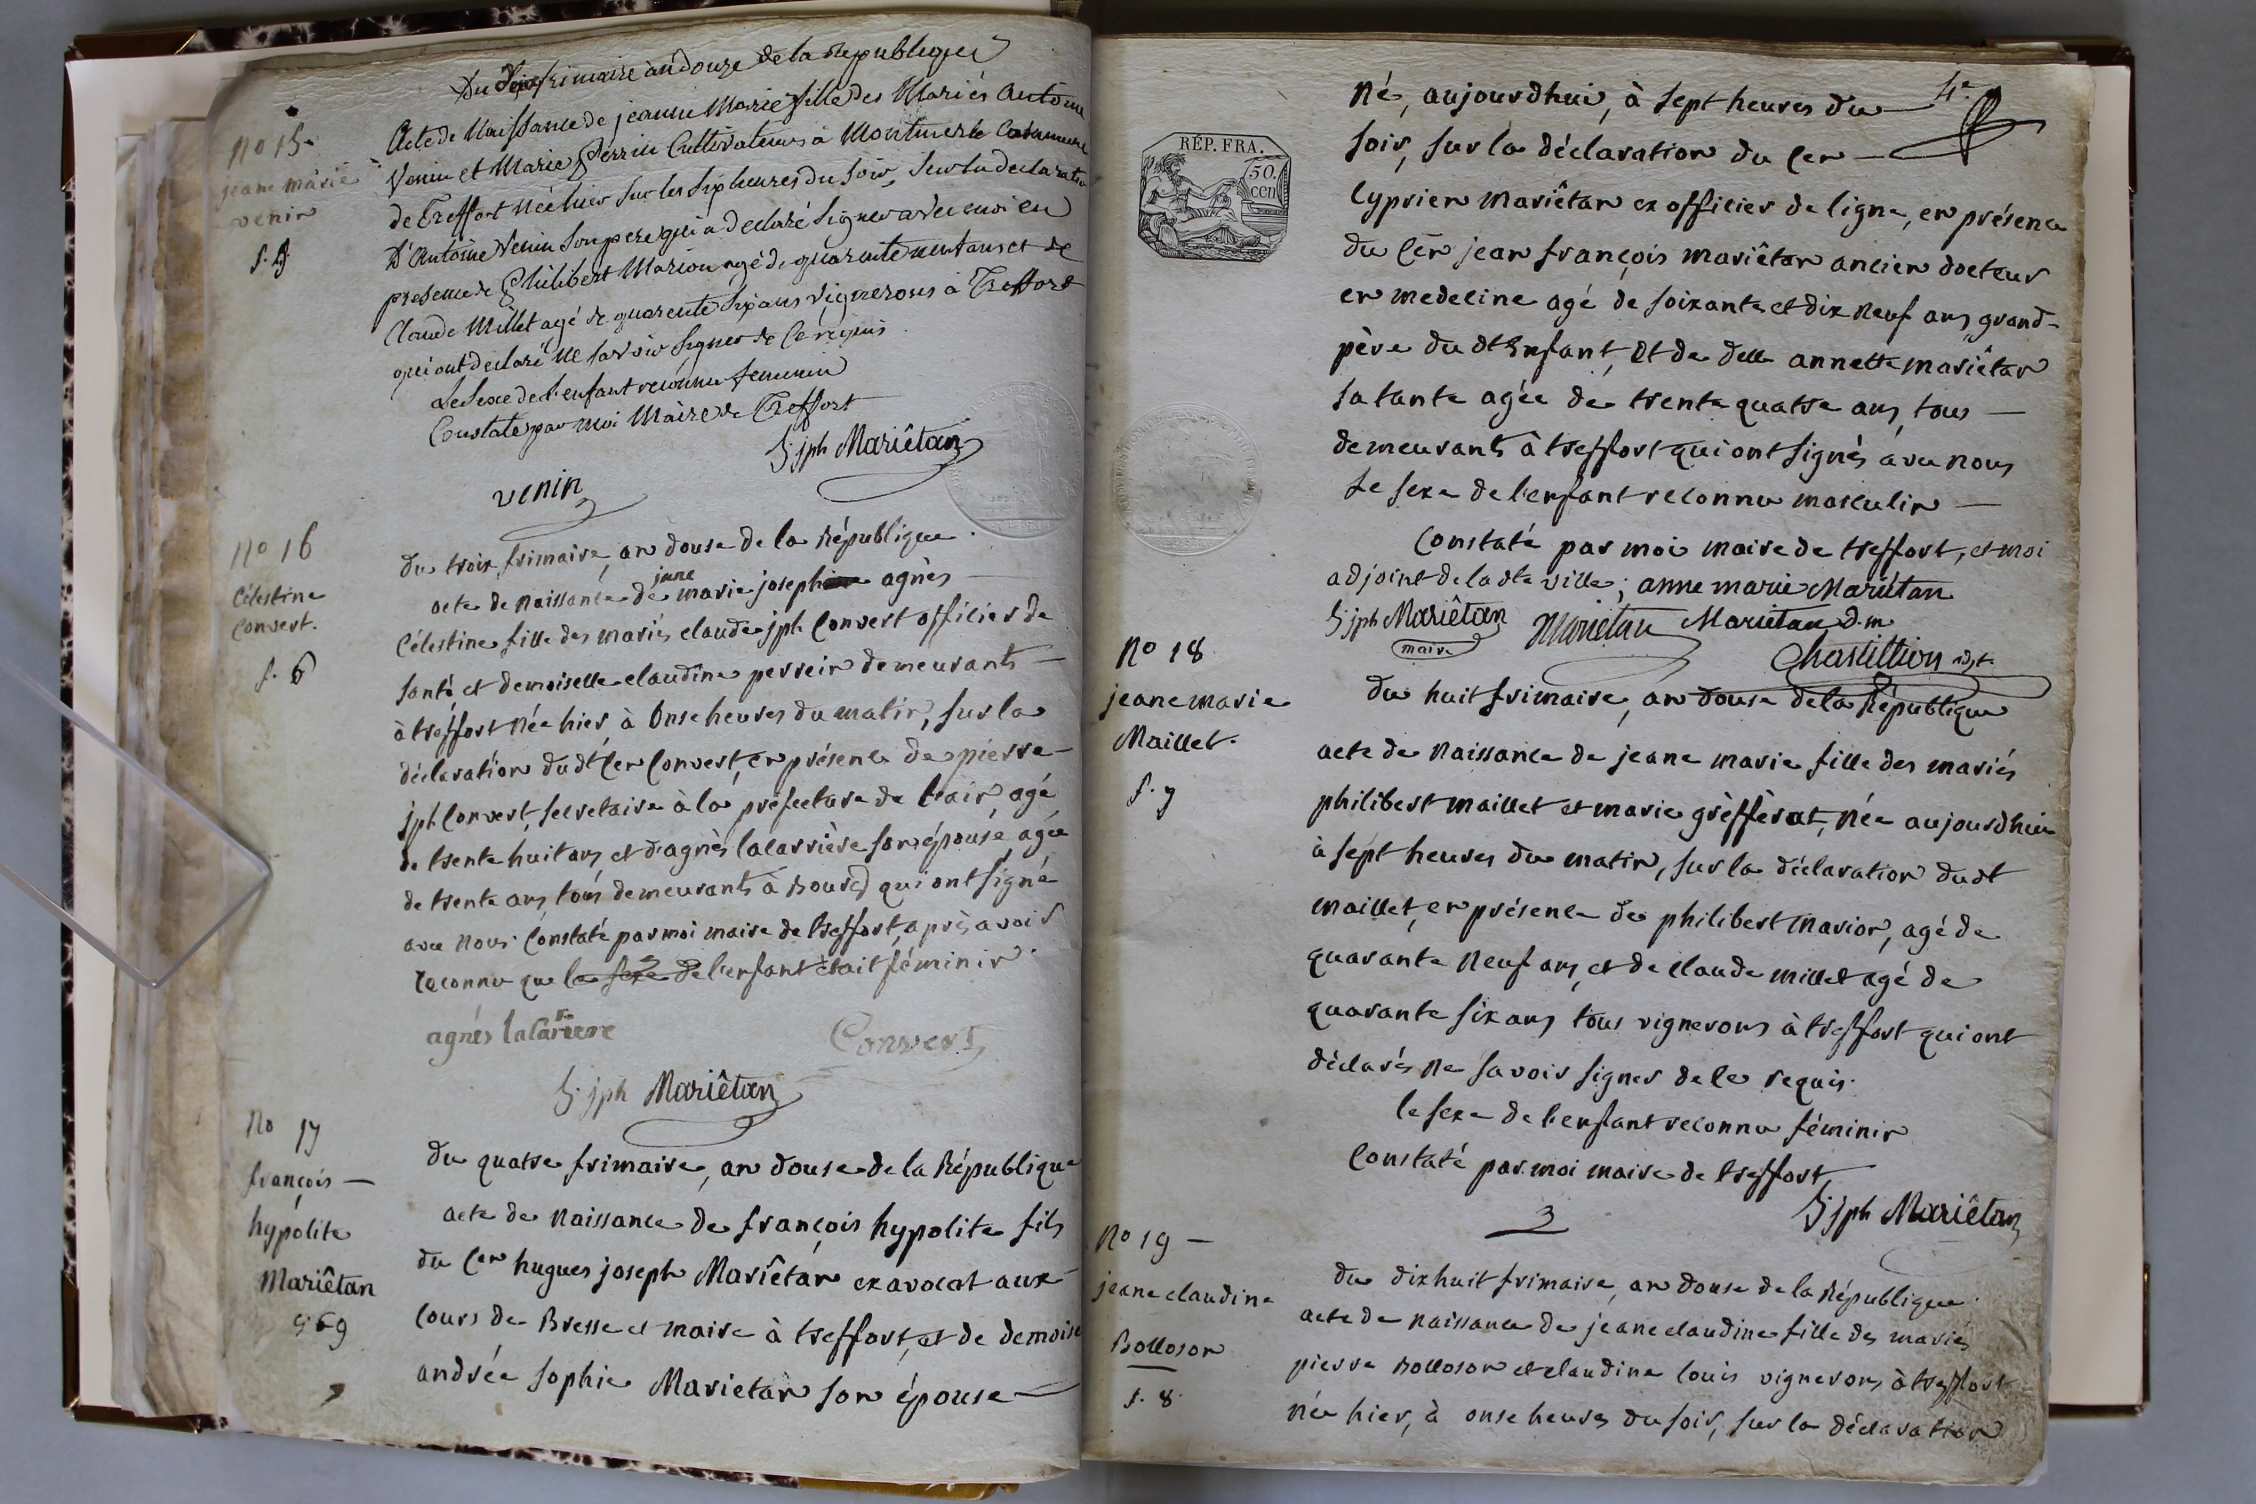 frimaire an douze de la republique
No 15
jeane marie
venin
f. 5
Acte de Naissance de jeanne Marie fille des Mariés Antoine
Venin et Marie Perrin Cultivateurs à Montmerle Commune
de Treffort née hier sur les six heures du soir, sur la declaration
d'Antoine Venin son pere qui a declaré signer avec moi en
presence de Philibert Marion agé de quarante neuf ans et de
Claude Millet agé de quarente six ans vignerons à Treffort
qui ont declaré ne savoir signer de ce requis
Le sexe de l'enfant reconnu feminin
Constaté par moi Maire de Treffort
jph Mariêtan
venin
No 16
Célestine
Convert.
f. 6
du trois frimaire, an douse de la République.
jeane
acte de naissance de marie joseph agnès
Célestine fille des mariés claude jph Convert officier de
santé et demoiselle claudine perrein demeurants
à treffort née hier à onse heures du matin, sur la
déclaration dudt Cen Convert, en présence de pierre
jph Convert, secretaire à la préfecture de l'air, agé
de trente huit ans et d'agnès lacarrière son épouse, agée
de trente ans, tous demeurants à Bourg qui ont signé
avec nous. Constaté par moi maire de treffort, après avoir
reconnu que le sexe de l'enfant était féminin.
agnès laCariere
Convert
jph Mariêtan
No 17
françois
hypolite
Mariêtan
du quatre frimaire, an douse de la République
acte de naissance de françois hypolite fils
du Cen hugues joseph Mariêtan ex avocat aux
Cours de Bresse et maire à treffort, et de demoise
andrée sophie Marietan son épouse
4e
RÉP. FRA.
50. cen
né, aujourdhui, à sept heures du
soir, sur la déclaration du Cen
Cyprien mariêtan ex officier de ligne, en présence
du Cen jean françois mariêtan ancien docteur
en medecine agé de soixante et dix neuf ans, grand-
père du dt enfant, et de delle annette mariêtan
sa tante agée de trente quatre ans, tous
demeurants à treffort qui ont signés avec nous
le sexe de l'enfant reconnu masculin
Constaté par moi maire de treffort, et moi
adjoint de la dte ville; anne marie Mariêtan
jph Mariêtan Mariêtan Mariêtan d.m.
maire
Chatillion adjt
No 18
jeane marie
Maillet.
f. 7
du huit frimaire, an douse de la République
acte de naissance de jeane marie fille des mariés
philibert maillet et marie grèfférat, née aujourdhui
à sept heures du matin, sur la déclaration dudt
maillet, en présence de philibert marion, agé de
quarante neuf ans, et de claude millet agé de
quarante six ans, tous vignerons à treffort qui ont
déclarés ne savoir signer de ce requis.
le sexe de l'enfant reconnu féminin
Constaté par moi maire de treffort
jph Mariêtan
No 19
jeane claudine
Bolloson
f. 8.
du dixhuit frimaire, an douse de la République.
acte de naissance de jeane claudine fille des mariés
pierre Bolloson et claudine louis vignerons à treffort
née hier, à onse heures du soir, sur la déclaration